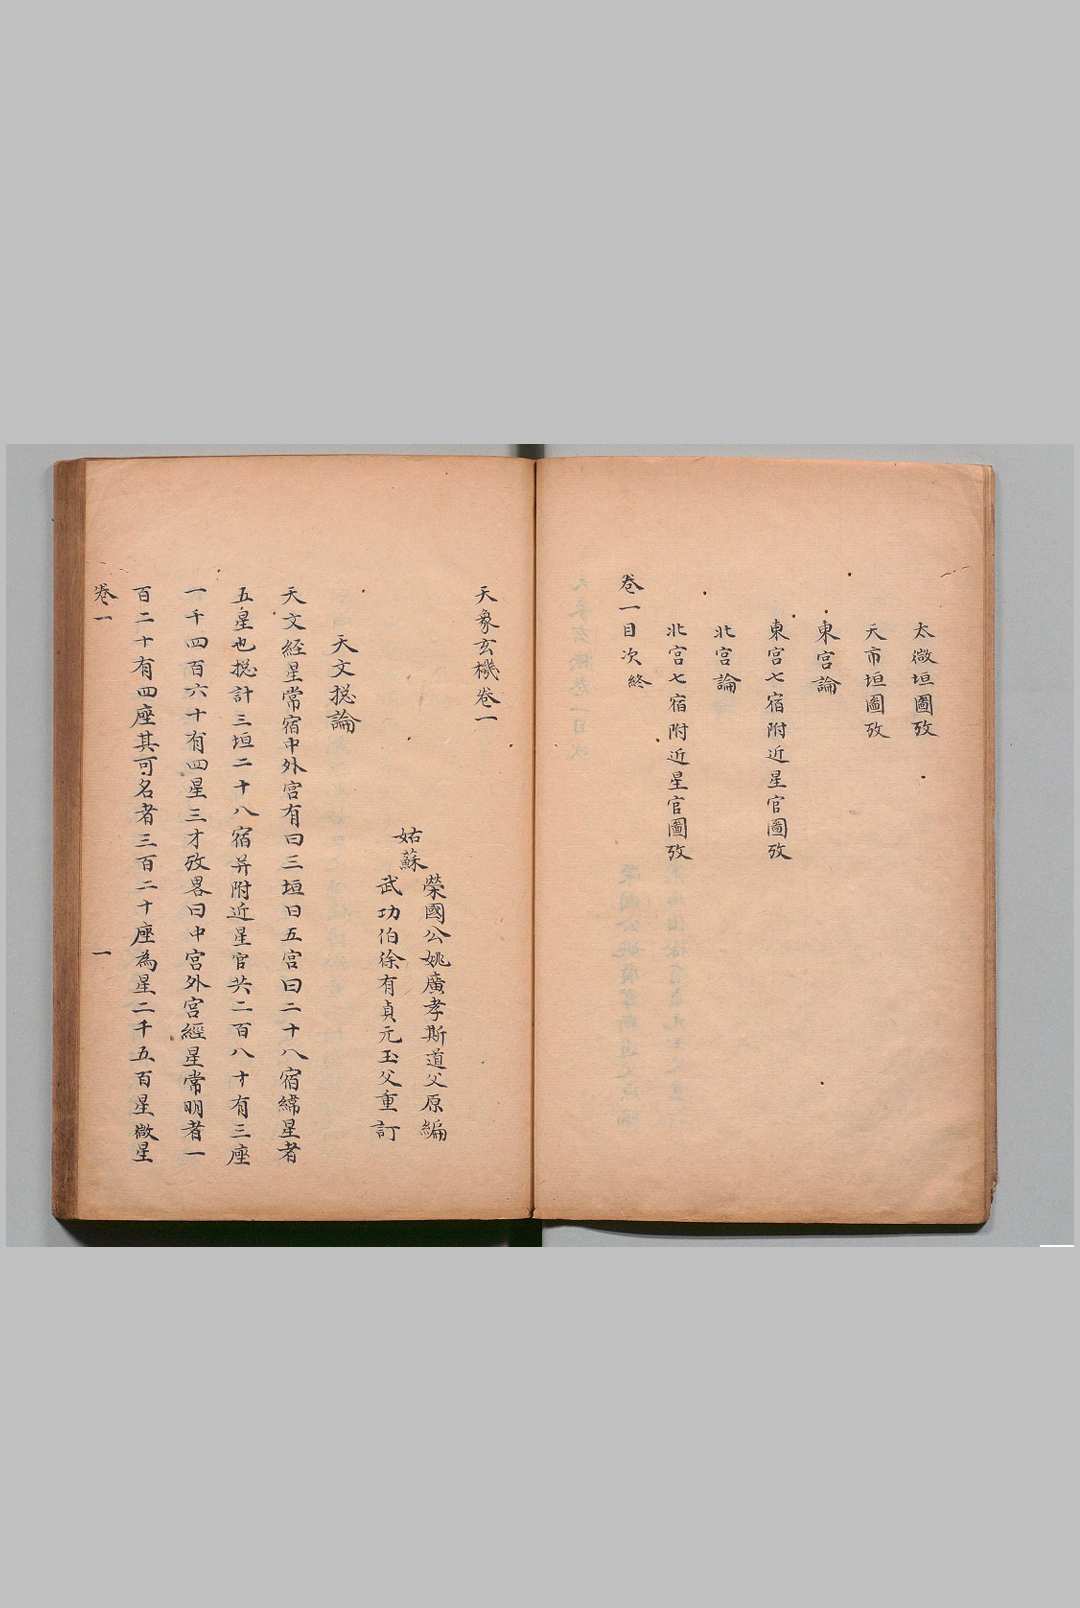 太微垣圖攷
天市垣圖攷
東宮論
東宮七宿附近星官圖攷
北宮論
北宮七宿附近星官圖攷
卷一目次終
天象玄機卷一
姑蘇
榮國公姚廣孝斯道父原編
武功伯徐有貞元玉父重訂
天文捴論
天文経星常宿中外宮有曰三垣曰五宮曰二十八宿緯星者
五星也捴計三垣二十八宿并附近星官共二百八十有三座
一千四百六十有四星三才攷畧曰中宮外宮經星常明者一
百二十有四座其可名者三百二十座為星二千五百星微星
卷一
一